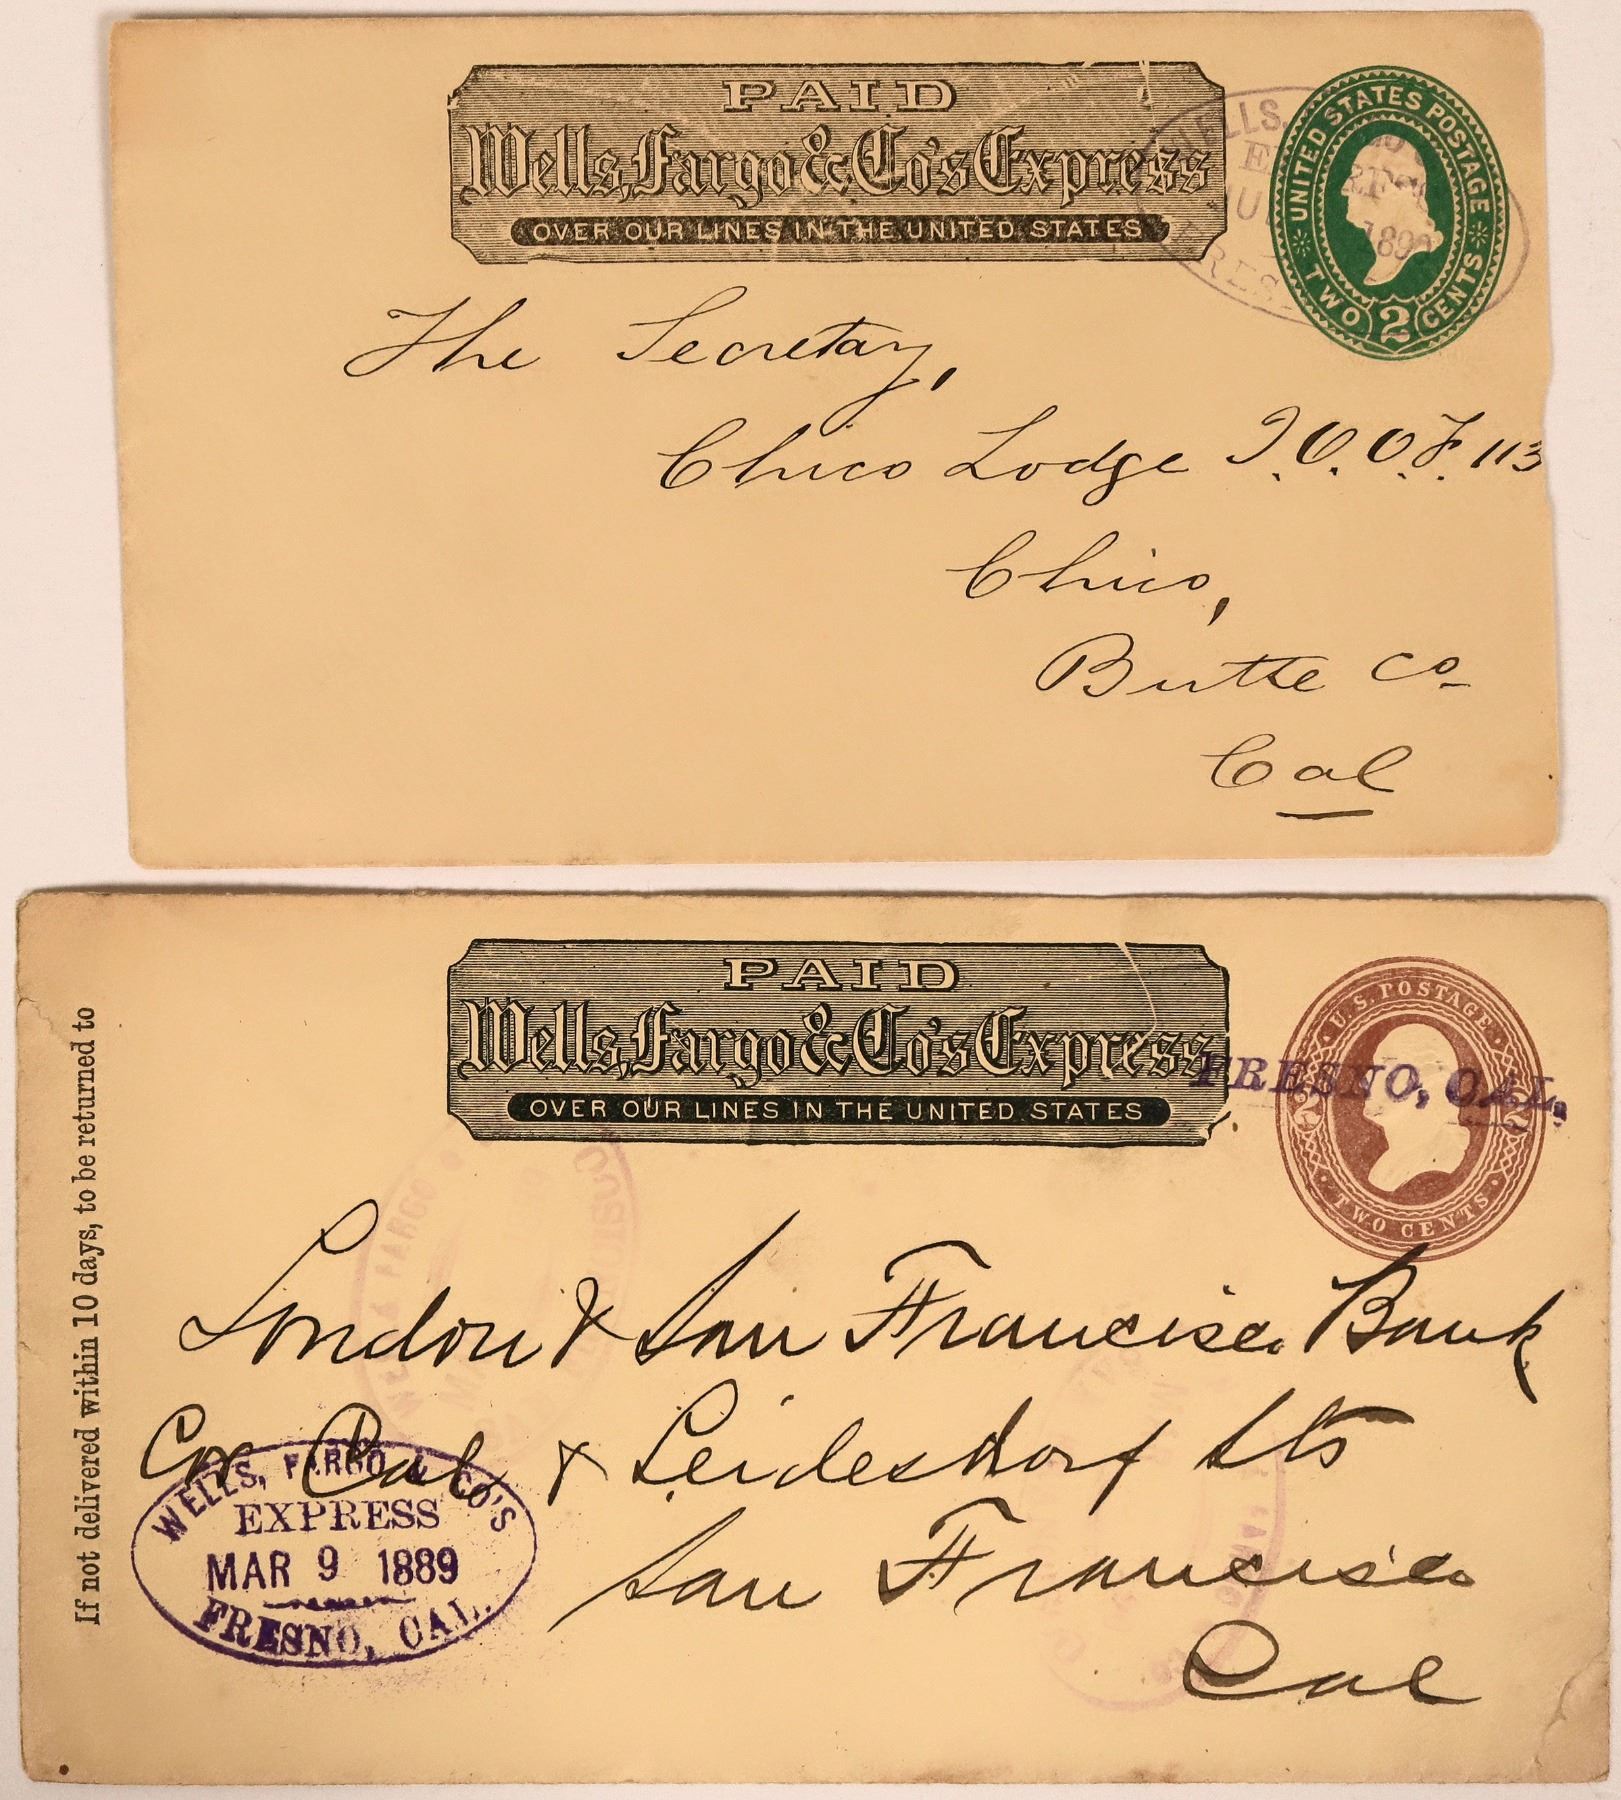 PAID
Wells, Fargo & Co's Express
OVER OUR LINES IN THE UNITED STATES
UNITED STATES POSTAGE
TWO 2 CENTS
WELLS,
FRES
The Secretary,
Chico Lodge I.O.O.F. 113
Chico,
Butte Co
Cal
PAID
Wells, Fargo & Co's Express
OVER OUR LINES IN THE UNITED STATES
U.S. POSTAGE
2 2
TWO CENTS
FRESNO, CAL.
If not delivered within 10 days, to be returned to
London & San Francisco Bank
Cor Cal & Leidesdorf Sts
San Francisco
Cal
WELLS, FARGO & CO'S
EXPRESS
MAR 9 1889
FRESNO, CAL.
FARGO